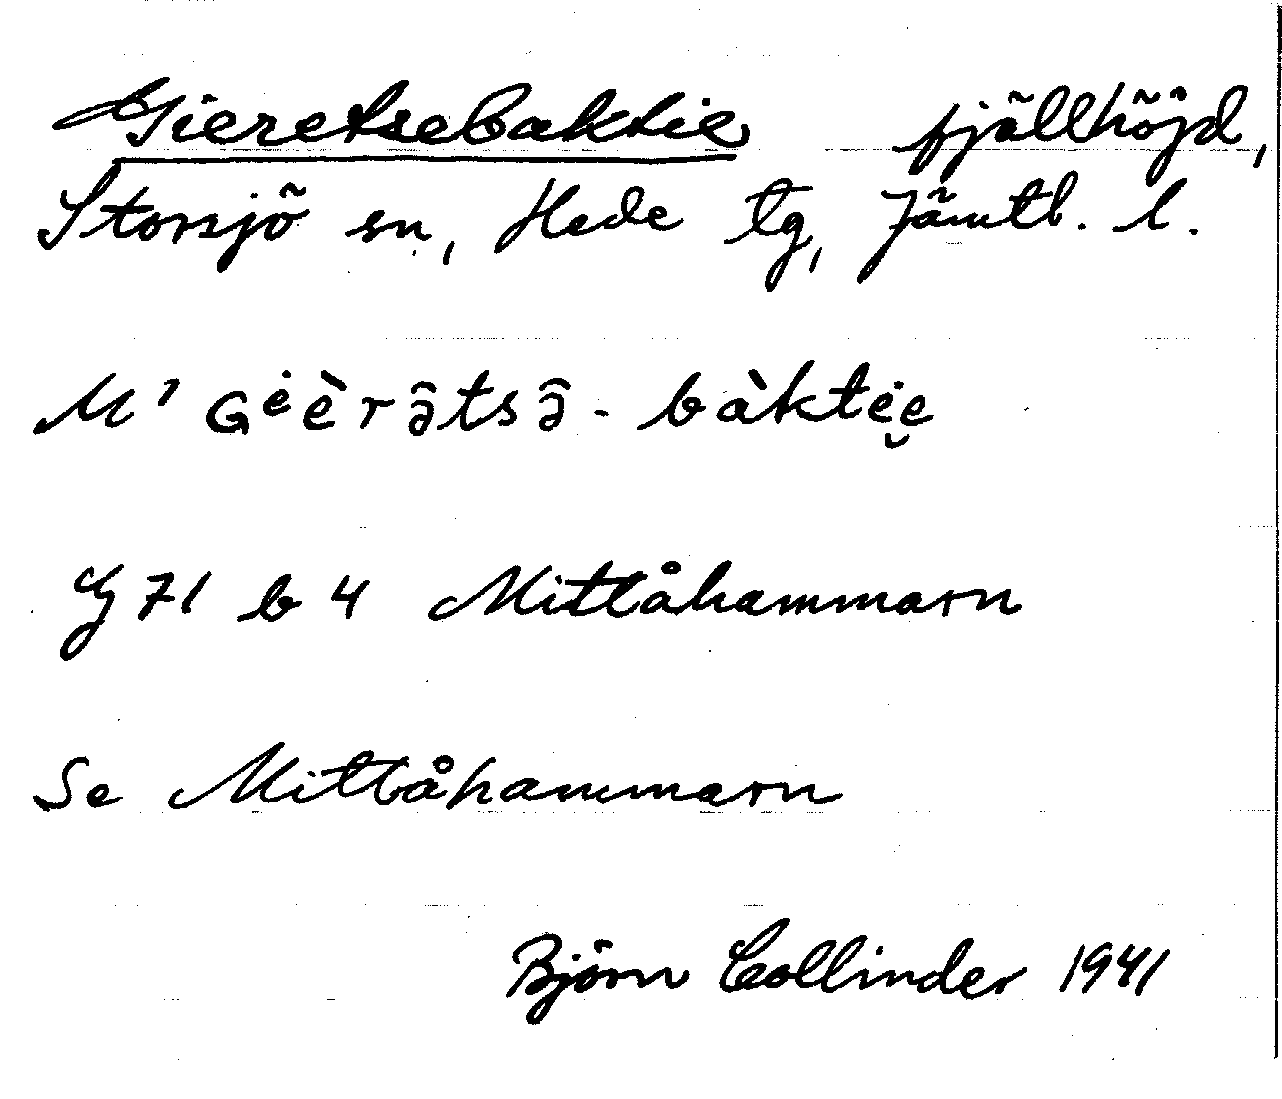 Gieretsebaktie fjällhöjd,
Storsjö sn, Hede tg, Jämtl. l.
M¹ Gėèrə̂tsə̂-bàktė̯e
G 71 b 4 Mittåhammarn
Se Mittåhammarn
Björn Collinder 1941